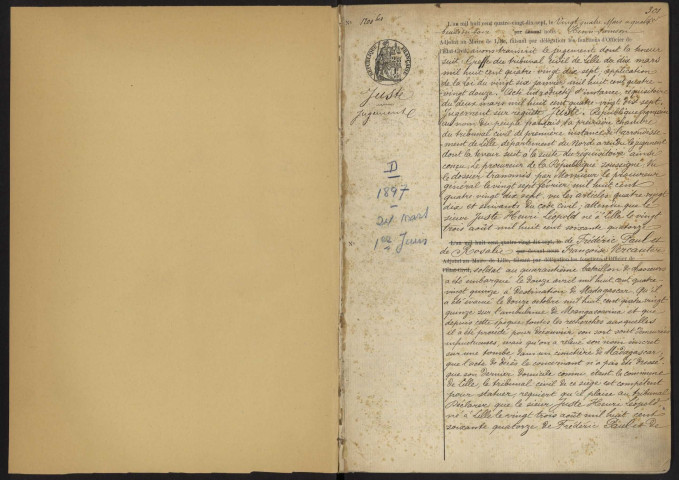 301
N° 1200 bis
L'an mil huit cent quatre-vingt-dix sept, le vingt quatre Mars à quatre
heures du soir par devant nous Henri
Adjoint au Maire de Lille, faisant par délégation les fonctions d'Officier de
l'Etat-Civil, avons transcrit le jugement dont la teneur
suit. Greffe du tribunal civil de Lille du dix mars
mil huit cent quatre vingt dix sept, application
de la loi du vingt six janvier mil huit cent quatre
vingt douze. Acte introductif d'instance, réquisitoire
du deux mars mil huit cent quatre-vingt dix sept.
Jugement sur requête Juste. République française
au nom du peuple français la première chambre
du tribunal civil de première instance de l'arrondisse-
ment de Lille département du Nord a rendu le jugement
dont la teneur suit à la suite du réquisitoire ainsi
conçu. Le procureur de la République soussigné vu
le dossier transmis par Monsieur le procureur
général le vingt sept février mil huit cent
quatre vingt dix sept, vu les articles quatre vingt
dix et suivants du code civil; attendu que le
sieur Juste Henri Léopold né à Lille le vingt
trois août mil huit cent soixante quatorze
Juste
Jugement
D
1897
dix mars
1200 Juin
N°
L'an mil huit cent quatre-vingt-dix sept, le de Frédéric Paul et
de Rosalie par devant nous Françoise
Adjoint au Maire de Lille, faisant par délégation les fonctions d'Officier de
l'Etat-Civil, soldat au quarantième bataillon de chasseurs
a été embarqué le douze avril mil huit cent quatre
vingt quinze à destination de Madagascar. Qu'il
a été évacué le douze octobre mil huit cent quatre vingt
quinze sur l'ambulance de et que
depuis cette époque toutes les recherches auxquelles
il a été procédé pour découvrir son sort sont demeurées
infructueuses, mais qu'on a relevé son nom inscrit
sur une tombe dans un cimetière de Madagascar,
que l'acte de décès le concernant n'a pas été dressé
que son dernier domicile connu étant la commune
de Lille, le tribunal civil de ce siège est compétent
pour statuer, requiert qu'il plaise au tribunal
déclarer que le sieur Juste Henri Léopold
né à Lille le vingt trois août mil huit cent
soixante quatorze de Frédéric Paul et de